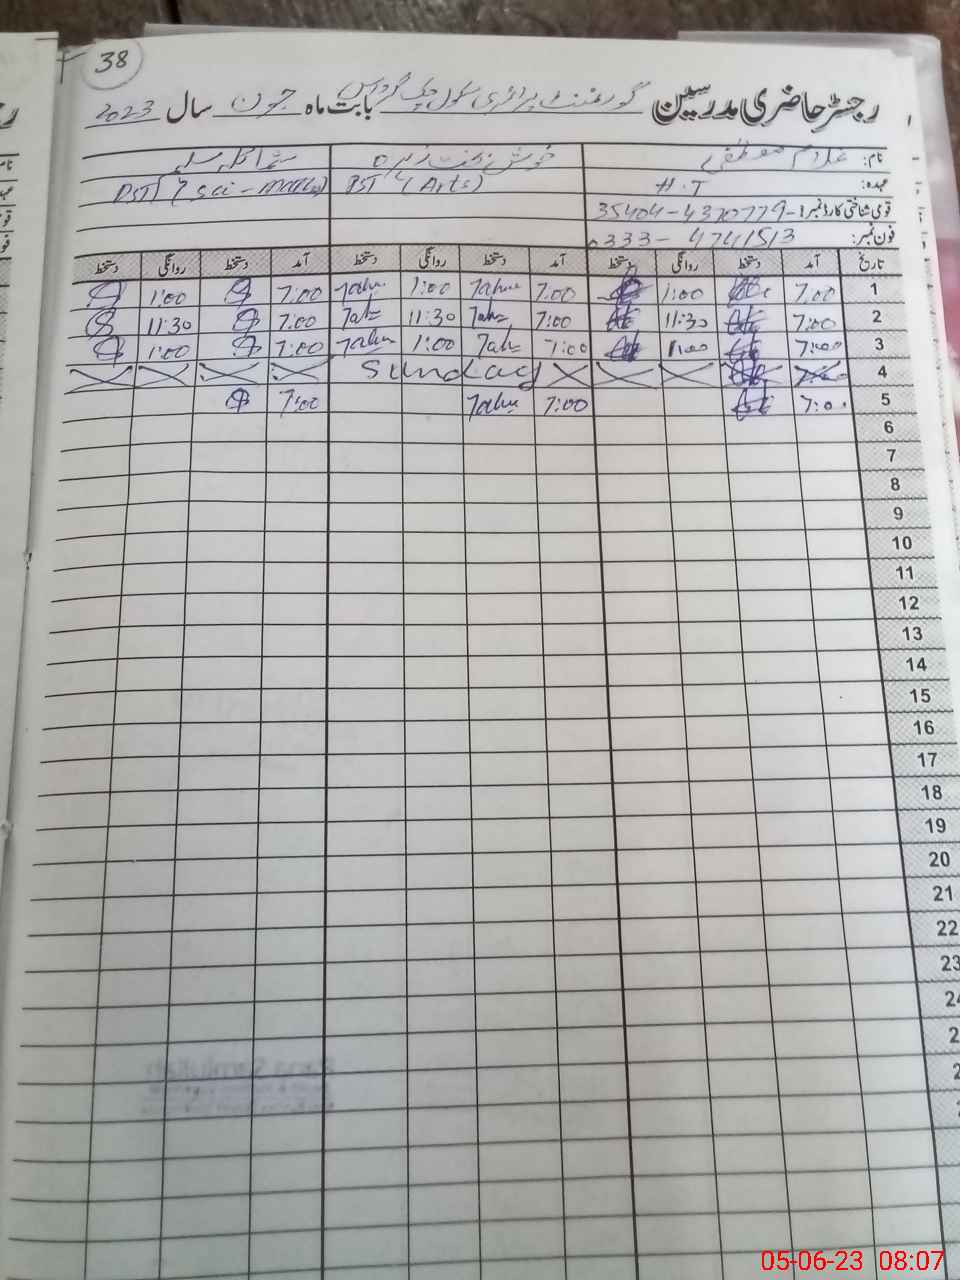 38
رجسٹر حاضری مدرسین گورنمنٹ پرائمری سکول چک بابت ماہ جون سال 2023
نام: غلام مصطفی خوش بخت زہرہ شمائلہ
عہدہ: H.T PST (Arts) PST (Sci-Maths)
قومی شناختی کارڈ نمبر: 35404-4370779-1
فون نمبر: 0333-4741513
تاریخ آمد دستخط روانگی دستخط آمد دستخط روانگی دستخط آمد دستخط روانگی دستخط
1 7:00 1:00 7:00 1:00 7:00 1:00
2 7:00 11:30 7:00 11:30 7:00 11:30
3 7:00 1:00 7:00 1:00 7:00 1:00
4 Sunday
5 7:00 7:00 7:00
6
7
8
9
10
11
12
13
14
15
16
17
18
19
20
21
22
23
24
05-06-23 08:07